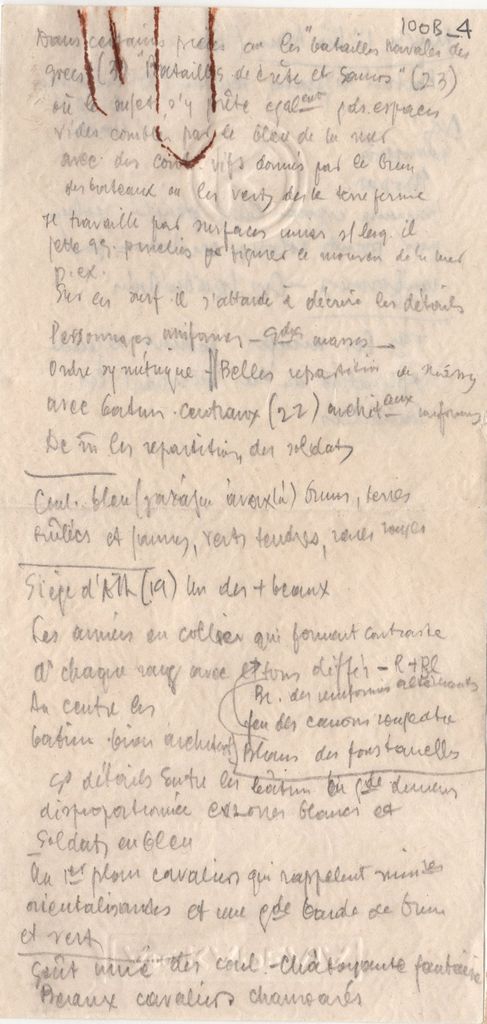 100B_4
Dans certaines pièces ou les "batailles navales des
grecs (2) "Batailles de Crète et Samos" (23)
où le sujet s'y prête égalent gds espaces
vides comblés par le bleu de la mer
avec des vifs donnés par le brun
des bateaux ou les verts de la terre ferme
Il travaille par surfaces unies s/ lesq. il
jette qq. pr figurer le mouvem de la mer
p. ex.
Sur ces surf. il s'attarde à décrire les détails
Personnages uniformes - gdes masses -
Ordre symétrique - Belles repartition de
avec batim. centraux (22) archit.aux
De m les repartition des soldats
Coul. bleu ( ) bruns, terres
brûlées et jaunes, verts tendres, rares rouges
Siège d'Ath (19) Un des + beaux
Les armées en collier qui forment contraste
à chaque rang avec tons différ - R + Bl
Bl. des uniformes alternants
feu des canons rouge
Blancs des foustanelles
Au centre les
batim. bien archit.
gs détails Entre les batim en gde
disproportionnée et zones blancs et
Soldats en bleu
Au 1er plan cavaliers qui rappellent minres
orientalisandes et une gde bande de brun
et verts
Goût des coul. - Chatoyante fantaisie
Beaux cavaliers chamarrés